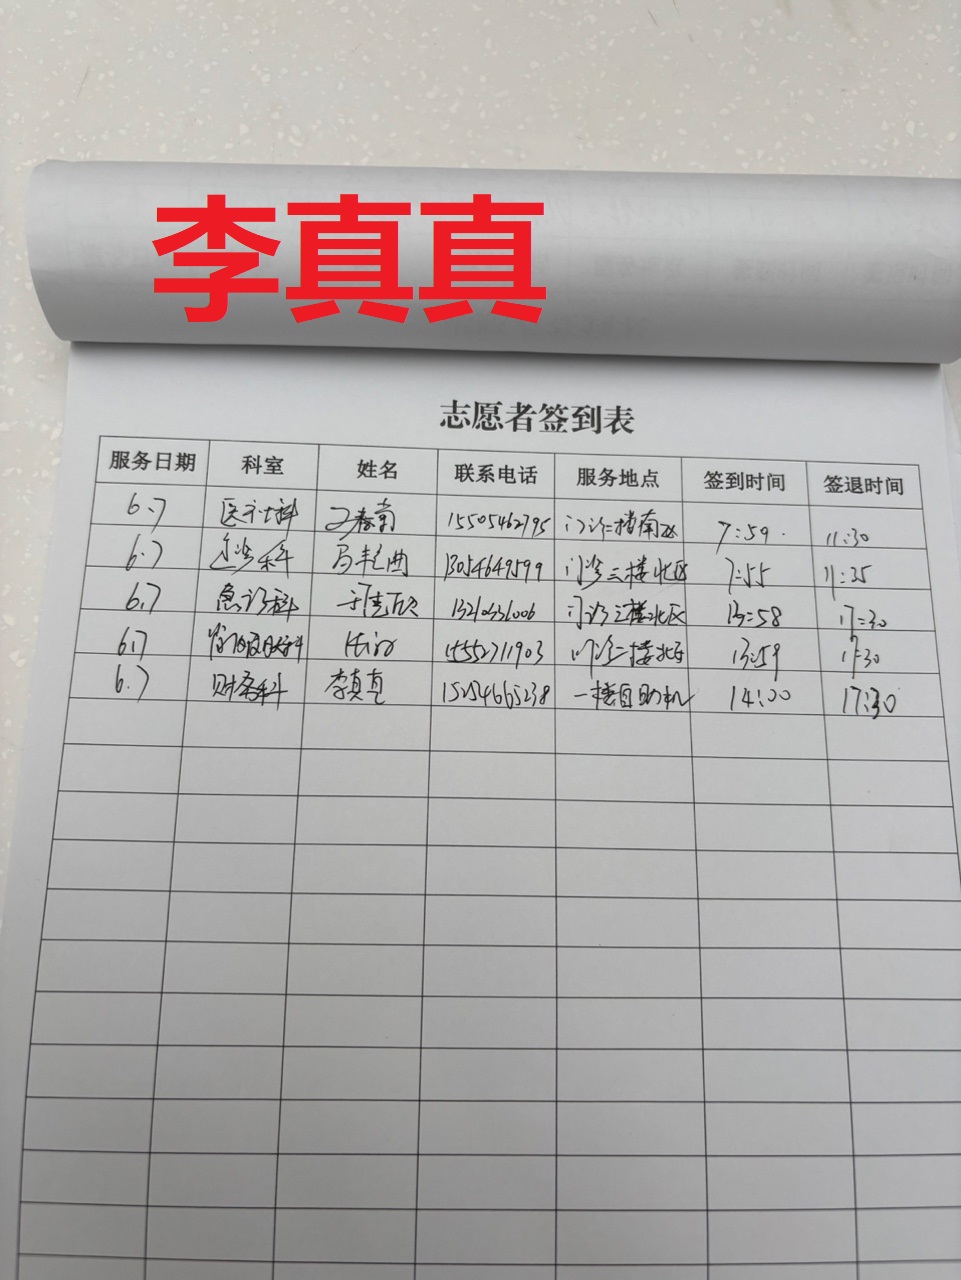 李真真
志愿者签到表
服务日期 科室 姓名 联系电话 服务地点 签到时间 签退时间
6.7 医社科 15505462795 门诊指南区 7:59 11:30
6.7 13054649599 门诊三楼北区 7:55 11:35
6.7 急诊科 于佳欣 13210331006 门诊三楼北区 13:58 17:30
6.7 15552711903 门诊二楼北区 13:59 17:30
6.7 财务科 李真真 15254665238 一楼自助机 14:00 17:30